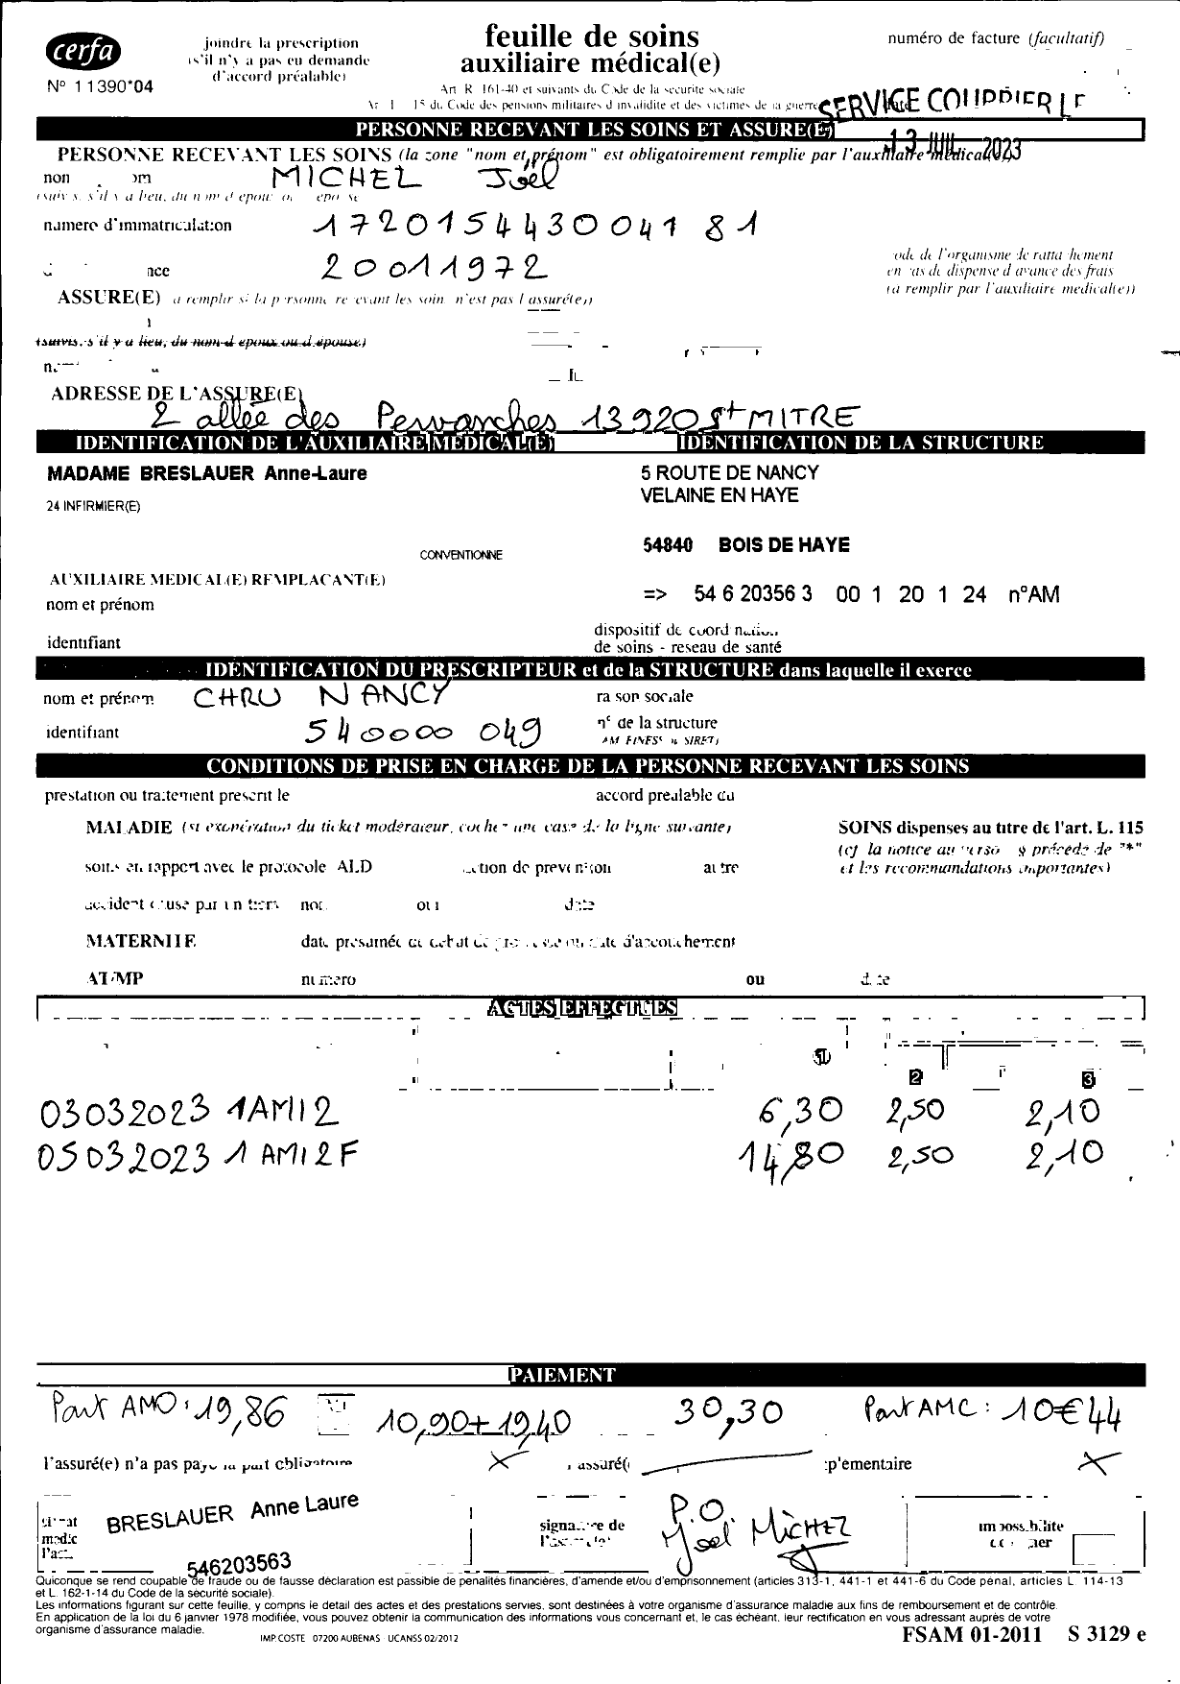 cerfa
N° 11390*04
joindre la prescription
(s'il n'y a pas eu demande
d'accord préalable)
feuille de soins
auxiliaire médical(e)
Art R 161-40 et suivants du Code de la securite sociale
15 du Code des pensions militaires d invalidite et des victimes de la guerre
numéro de facture (facultatif)
SERVICE COURRIER LE
13 JUIL 2023
PERSONNE RECEVANT LES SOINS ET ASSURE(E)
PERSONNE RECEVANT LES SOINS (la zone "nom et prénom" est obligatoirement remplie par l'auxiliaire médical)
MICHEL Joël
numero d'immatriculation 1720154430041 81
20011972
code de l'organisme de rattachement
en cas de dispense d avance des frais
(a remplir par l'auxiliaire medical(e))
ASSURE(E) a remplir si la personne recevant les soins n'est pas l assuré(e))
(suivis, s'il y a lieu, du nom d epoux ou d epouse)
ADRESSE DE L'ASSURE(E)
2 allée des Pervanches 13920 St MITRE
IDENTIFICATION DE L'AUXILIAIRE MEDICAL(E) IDENTIFICATION DE LA STRUCTURE
MADAME BRESLAUER Anne-Laure
24 INFIRMIER(E)
CONVENTIONNE
5 ROUTE DE NANCY
VELAINE EN HAYE
54840 BOIS DE HAYE
AUXILIAIRE MEDICAL(E) REMPLACANT(E)
nom et prénom
=> 54 6 20356 3 00 1 20 1 24 n°AM
identifiant
dispositif de coordination
de soins - reseau de santé
IDENTIFICATION DU PRESCRIPTEUR et de la STRUCTURE dans laquelle il exerce
nom et prénom CHRU NANCY
raison sociale
identifiant 540000 049
n° de la structure
CONDITIONS DE PRISE EN CHARGE DE LA PERSONNE RECEVANT LES SOINS
prestation ou traitement prescrit le accord prealable du
MALADIE (si exonération du ticket modérateur, cocher une case de la ligne suivante)
SOINS dispenses au titre de l'art. L. 115
(cf la notice au verso § précédé de "*"
et les recommandations importantes)
soins en rapport avec le protocole ALD action de prevention autre
accident cause par un tiers non oui date
MATERNITE date presumée de debut de grossesse ou date d'accouchement
AT/MP numero ou date
ACTES EFFECTUES
1 2 3
03032023 1AMI2 6,30 2,50 2,10
05032023 1 AMI2F 14,80 2,50 2,10
PAIEMENT
Part AMO: 19,86 10,90+19,40 30,30 Part AMC: 10€44
l'assuré(e) n'a pas payé la part obligatoire
BRESLAUER Anne Laure
546203563
signature de
P.O.
Joel MICHEL
impossibilite
Quiconque se rend coupable de fraude ou de fausse déclaration est passible de penalités financières, d'amende et/ou d'emprisonnement (articles 313-1, 441-1 et 441-6 du Code pénal, articles L 114-13
et L. 162-1-14 du Code de la sécurité sociale).
Les informations figurant sur cette feuille, y compris le detail des actes et des prestations servies, sont destinées à votre organisme d'assurance maladie aux fins de remboursement et de contrôle.
En application de la loi du 6 janvier 1978 modifiée, vous pouvez obtenir la communication des informations vous concernant et, le cas échéant, leur rectification en vous adressant auprès de votre
organisme d'assurance maladie.
IMP.COSTE 07200 AUBENAS UCANSS 02/2012
FSAM 01-2011 S 3129 e